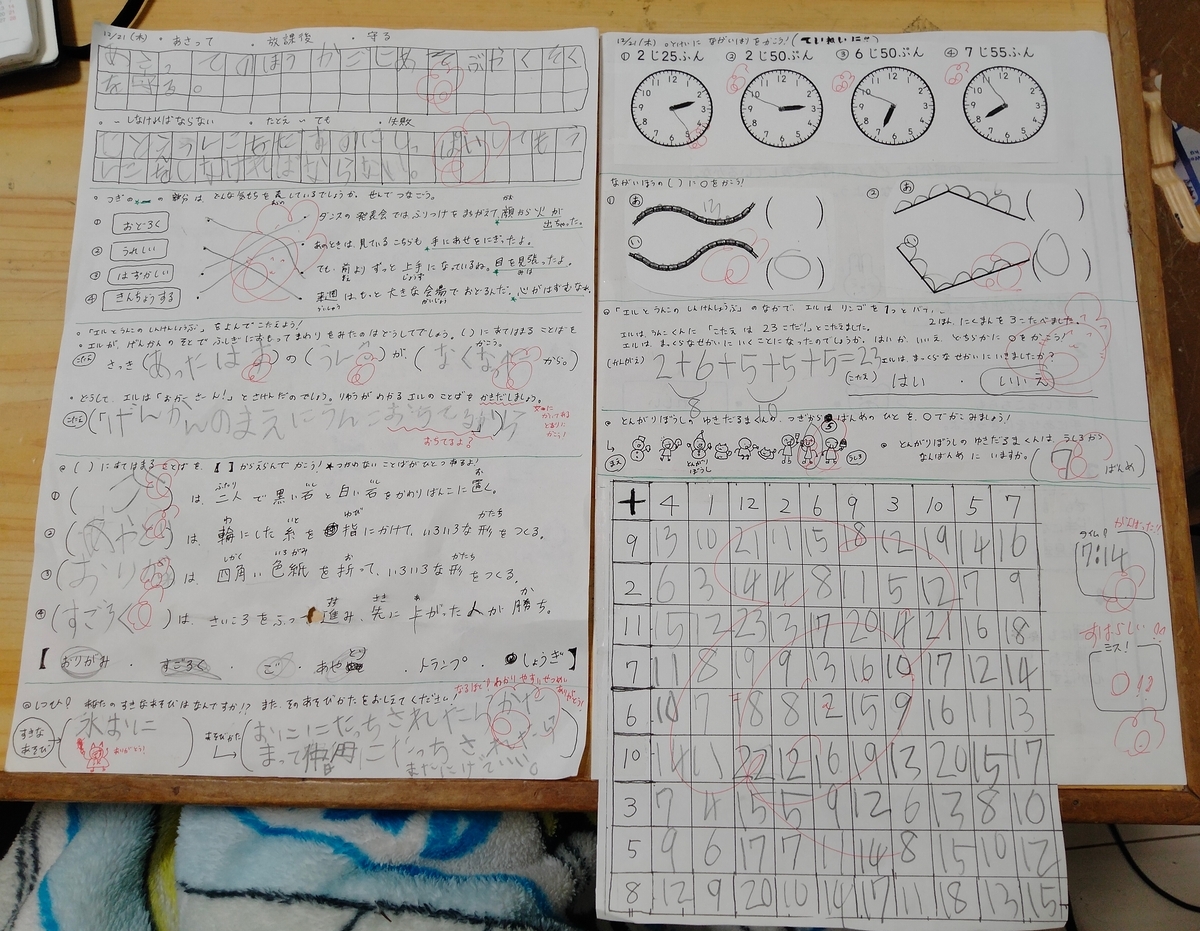 12/21(木) ・あさって ・放課後 ・守る
あさってのほうかごじゅ
を守る。
・〜しなければならない ・たとえ〜ても ・失敗
しっぱいしても う
しなければならない。
つぎの の部分は どんな気もちを表しているでしょうか。せんでつなごう。
① おどろく
② うれしい
③ はずかしい
④ きんちょうする
ダンスの発表会ではふりつけをまちがえて、顔から火が出ちゃった。
あのときは見ているこちらも手にあせをにぎったよ。
でも、前よりずっと上手になっているね。目を見張ったよ。
来週はもっと大きな会場でおどるんだ。心がはずむなぁ。
「エルとうんこのしんけんしょうぶ」をよんでこたえよう!
エルが、げんかんのそとでふしぎにおもってまわりをみたのはどうしてでしょう。( )にあてはまることばをかこう。
こたえ さっき(あったはず)の( )が、( )から。
どうして、エルは「おかーさーん!」とさけんだのでしょう。りゆうがわかるエルのことばをかきだしましょう。
こたえ (「げんかんのまえにうんこ
おちてるよ?
( )にあてはまることばを、【 】からえらんでかこう!*つかわないことばがひとつあるよ!
① ( )は、二人で黒い石と白い石をかわりばんこに置く。
② (あやと )は、輪にした糸を指にかけて、いろいろな形をつくる。
③ (おりが )は、四角い色紙を折って、いろいろな形をつくる。
④ (すごろく)は、さいころをふって進み、先に上がった人が勝ち。
【 おりがみ ・ すごろく ・ ご ・ あやとり ・ トランプ ・ しょうぎ 】
しつもん? あなたのすきなあそびはなんですか!? また、そのあそびかたをおしえてください!
なるほど!わかりやすいせつめいありがとう!
すきなあそび (氷おに)
ありがとう!
あそびかた (おににたっちされたらかた
まって にたっちされたら
またにげていい。)
12/21(木) とけいに ながいはりをかこう!(ていねいに)
① 2じ25ふん ② 2じ50ぷん ③ 6じ50ぷん ④ 7じ55ふん
ながいほうの( )に○をかこう!
① あ ( )
い (○)
② あ ( )
い (○)
「エルとうんこのしんけんしょうぶ」のなかで、エルはリンゴを1つと 2はい、にくまんを3こたべました。
エルは、うんこくんに「こたえは 23こだ!」とこたえました。
エルは、まっくらなせかいにいくことになったのでしょうか。はいか、いいえ、どちらかに○をかこう!
(かんがえ) 2+6+5+5+5=23 エルはまっくらなせかいにいきましたか?
8 10
(こたえ) はい ・ いいえ
とんがりぼうしのゆきだるまくんの、つぎから ばんめのひとを、○でかこみましょう!
まえ とんがりぼうし うしろ
とんがりぼうしのゆきだるまくんは、うしろからなんばんめにいますか。(7 ばんめ)
+ 4 1 12 2 6 9 3 10 5 7
9 13 10 21 11 15 18 12 19 14 16
2 6 3 14 4 8 11 5 12 7 9
11 15 12 23 13 17 20 14 21 16 18
7 11 8 19 9 13 16 10 17 12 14
6 10 7 18 8 12 15 9 16 11 13
10 14 11 22 12 16 19 13 20 15 17
3 7 4 15 5 9 12 6 13 8 10
5 9 6 17 7 11 14 8 15 10 12
8 12 9 20 10 14 17 11 18 13 15
がんばった!!
タイム!
7:14
すばらしい
ミス!
0